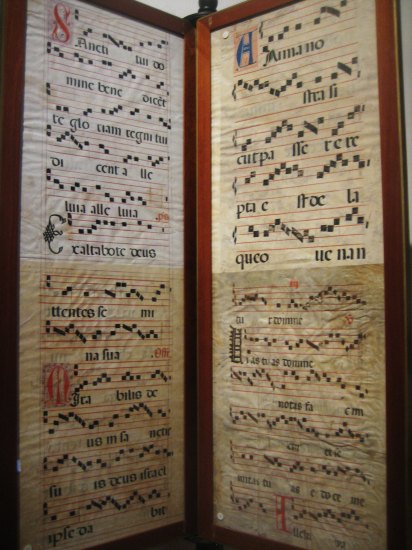 SAncti tui do
mine bene dicēt
te glo riam regni tui
di cent a lle
luia alle luia ps
Exaltabote deus
ttentes se mi
na sua Offi.
Mira bilis de
us in sa nctis
su is deus israel
ipse da bit
ANima no
stra si
cut pa sse r e re
pta e st de la
queo ue nan
tu r domine
ias tuas domine
notas fa
mitas tu as e do ce me